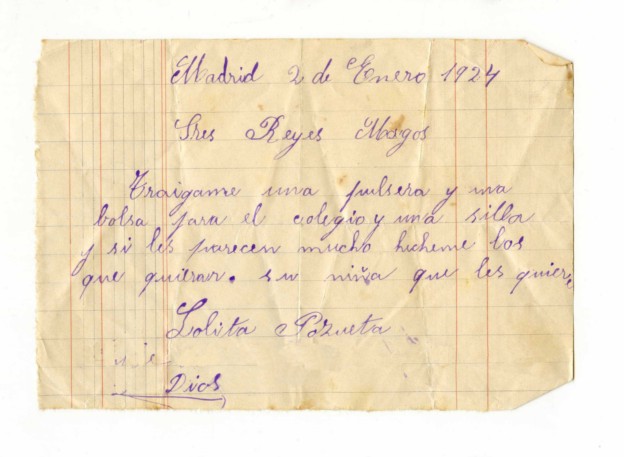 Madrid 2 de Enero 1924
Sres Reyes Magos
Traigame una pulsera y una
bolsa para el colegio y una silla
y si les parecen mucho hicheme los
que quieran. su niña que les quiere
Lolita Pozueta
Dios